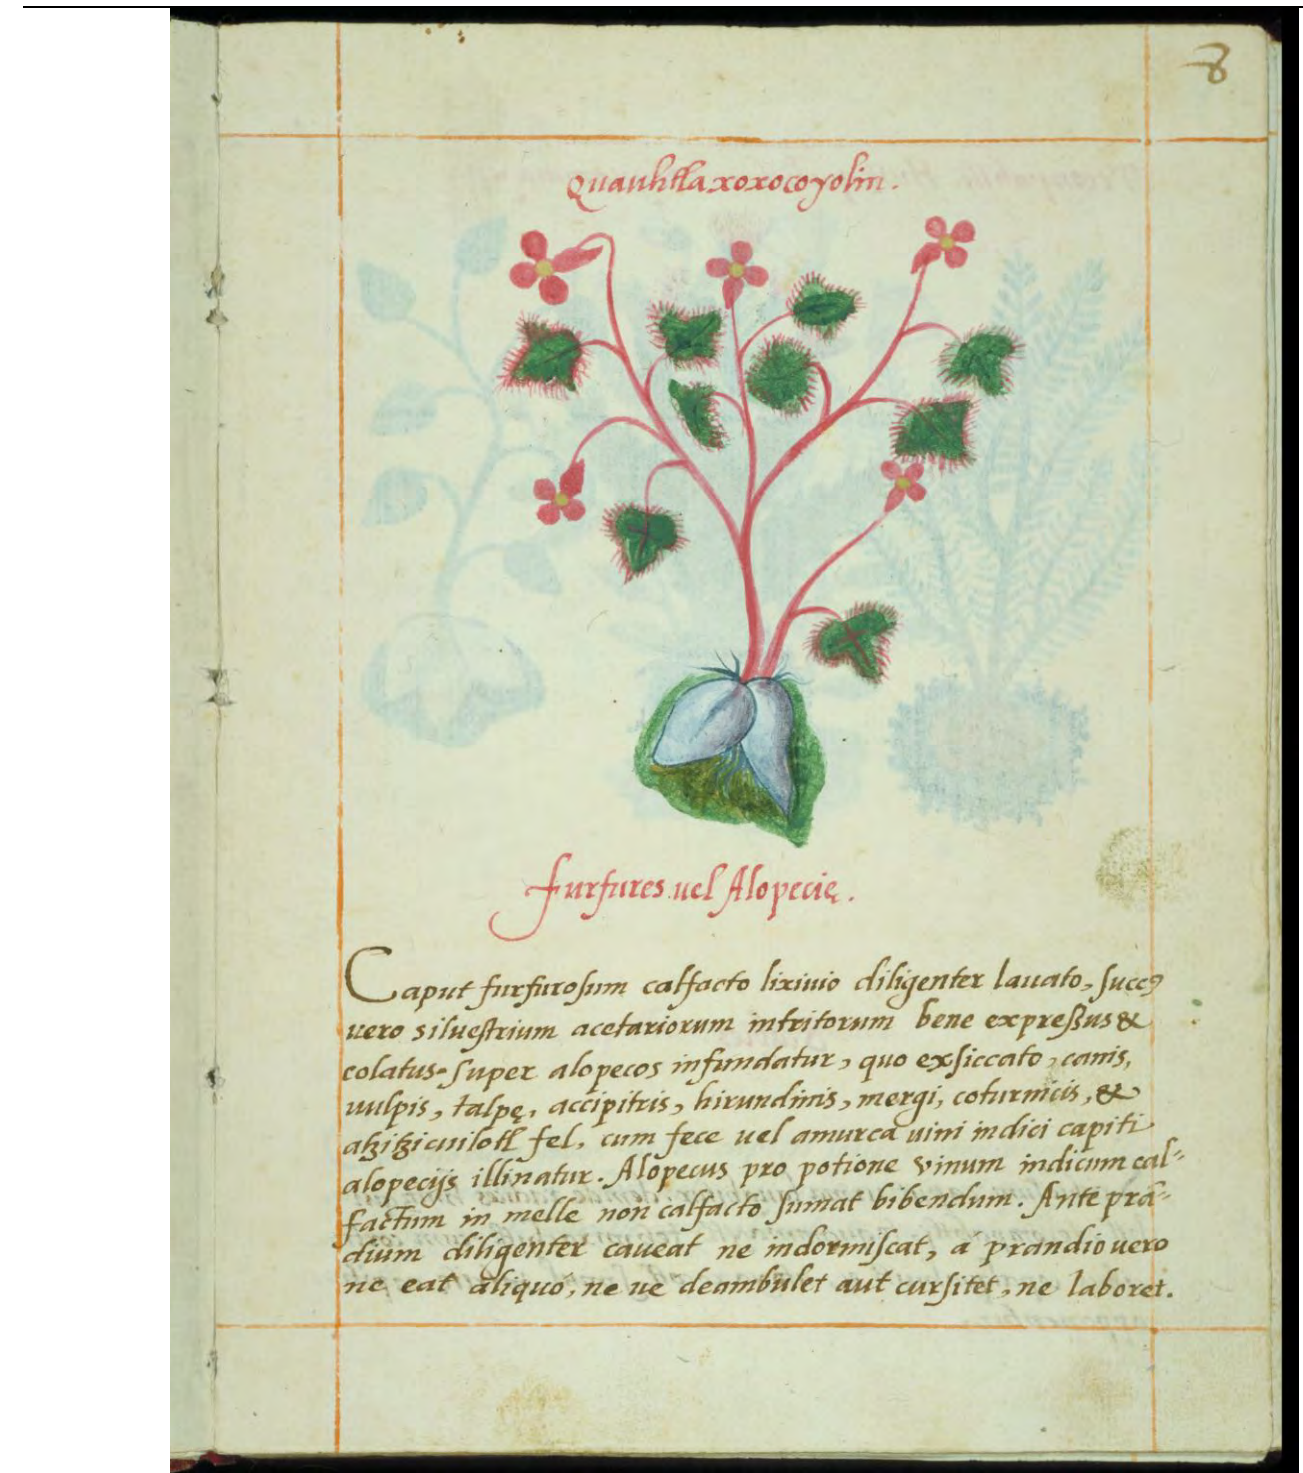 8
Quauhtla xoxocoyolin.
Furfures uel Alopecię.
Caput furfurosum calfacto lixiuio diligenter lauato, succꝰ
uero siluestrium acetariorum intritorum bene expreßus &
colatus super alopecos infundatur, quo exsiccato, canis,
uulpis, talpę, accipitris, hirundinis, mergi, coturnicis, &
atzitzicuilotl fel, cum fece uel amurca uini indici capiti
alopecijs illinatur. Alopecus pro potione vinum indicum cal-
factum in melle non calfacto sumat bibendum. Ante pran-
dium diligenter caueat ne indormiscat, á prandio uero
ne eat aliquó, ne ue deambulet aut cursitet, ne laboret.